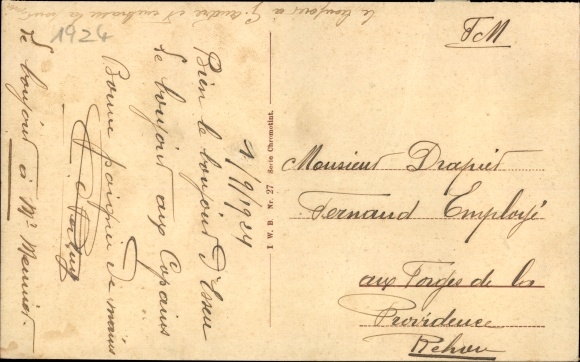 1924
FM
4/9/1924
Bien le bonjour d'Essen
Le bonjour aux Copains
Bonne poignée de mains
Le bonjour à Mr Meunier.
le bonjour à et embrasse la
1 W. B. Nr. 27 Serie Chromotint.
Monsieur Drapier
Fernand Employé
aux Forges de la
Providence
Rehon